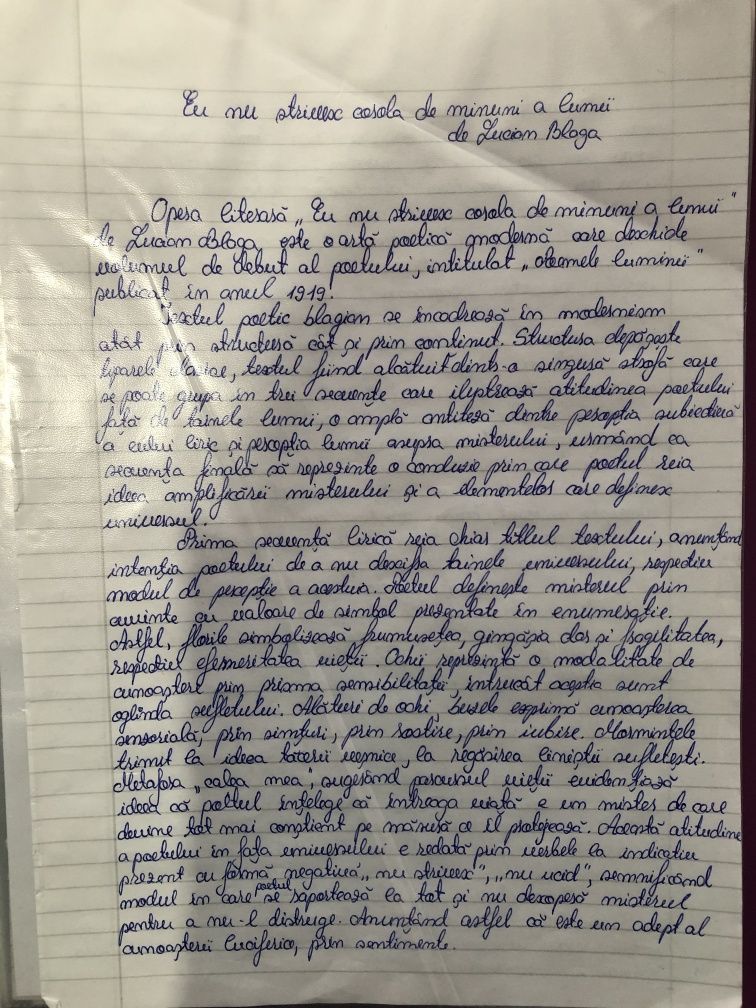 Eu nu strivesc corola de minuni a lumii
de Lucian Blaga
Opera literară „Eu nu strivesc corola de minuni a lumii"
de Lucian Blaga este o artă poetică modernă care deschide
volumul de debut al poetului, intitulat „Poemele luminii"
publicat în anul 1919.
Textul poetic blagian se încadrează în modernism
atât prin structură cât și prin conținut. Structura depășește
tiparele clasice, textul fiind alcătuit dintr-o singură strofă care
se poate grupa în trei secvențe care ilustrează atitudinea poetului
față de tainele lumii, o amplă antiteză dintre percepția subiectivă
a eului liric și percepția lumii asupra misterului, urmând ca
secvența finală să reprezinte o concluzie prin care poetul reia
ideea amplificării misterului și a elementelor care definesc
universul.
Prima secvență lirică reia chiar titlul textului, anunțând
intenția poetului de a nu descifra tainele universului, respectiv
modul de percepție a acestuia. Poetul definește misterul prin
cuvinte cu valoare de simbol prezentate în enumerație.
Astfel, florile simbolizează frumusețea, gingășia dar și fragilitatea,
respectiv efemeritatea vieții. Ochii reprezintă o modalitate de
cunoaștere prin prisma sensibilității, întrucât aceștia sunt
oglinda sufletului. Alături de ochi, buzele exprimă cunoașterea
senzorială, prin simțuri, prin rostire, prin iubire. Mormintele
trimit la ideea tăcerii veșnice, la regăsirea liniștii sufletești.
Metafora „calea mea", sugerând parcursul vieții evidențiază
ideea că poetul înțelege că întreaga viață e un mister de care
devine tot mai conștient pe măsură ce îl protejează. Această atitudine
a poetului în fața universului e redată prin verbele la indicativ
prezent cu formă negativă „nu strivesc", „nu ucid", semnificând
modul în care poetul se raportează la tot și nu descoperă misterul
pentru a nu-l distruge. Anunțând astfel că este un adept al
cunoașterii luciferice, prin sentimente.